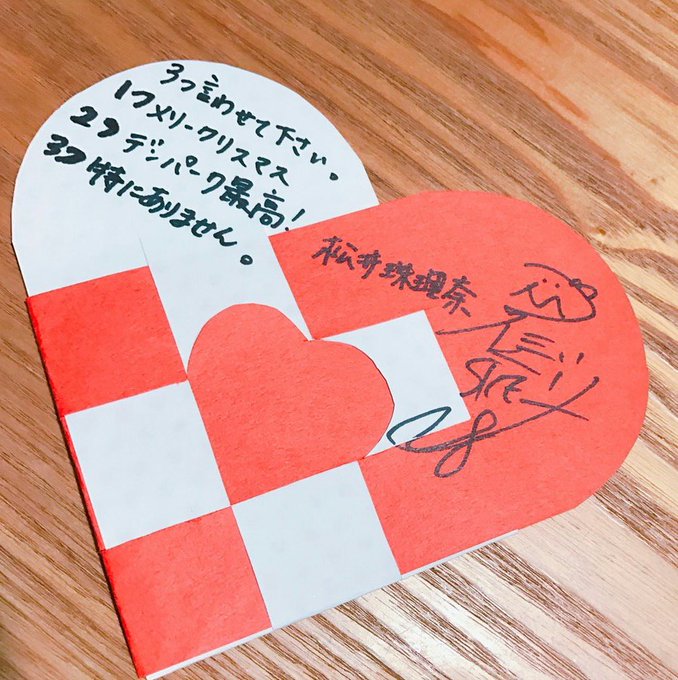 3つ言わせて下さい。
1つメリークリスマス
2つデンパーク最高!
3つ特にありません。
松井珠理奈